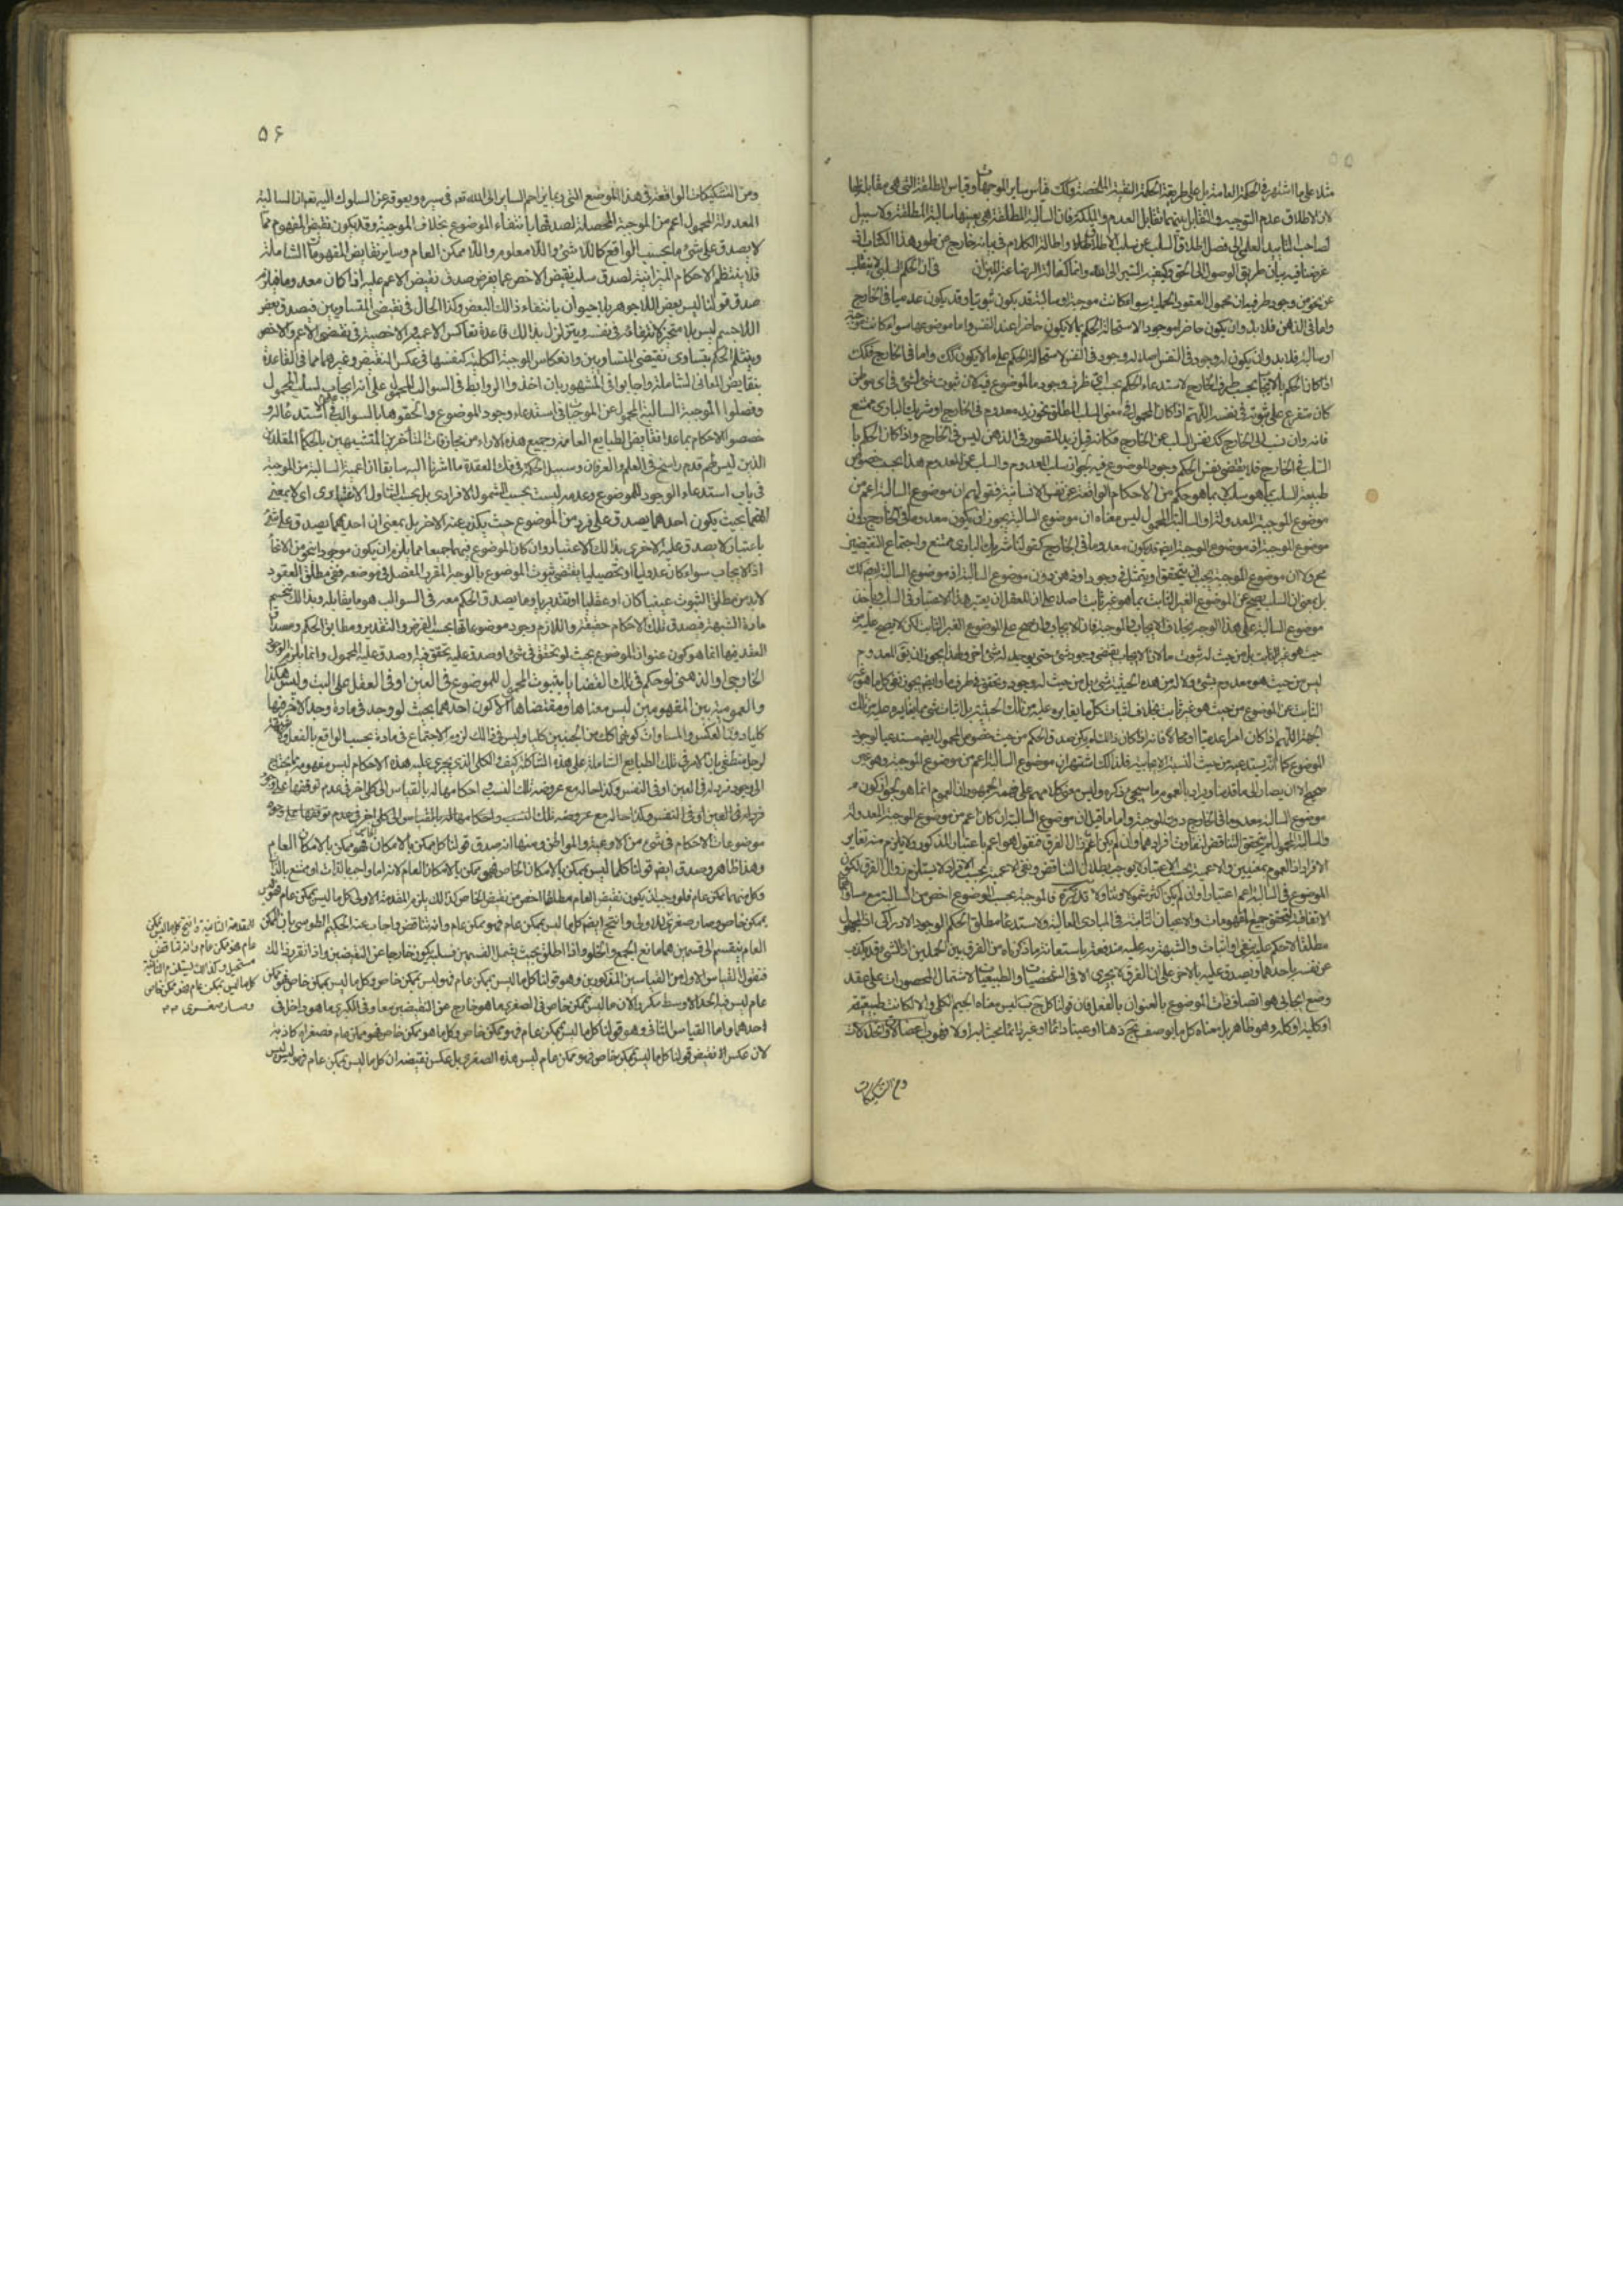 ٥٥
مثلا على ما اشتهر فى الحكمة العامية بل على طريقة الحكمة النقية الملخصة وكذلك قياس ساير الموجهات وقياس المطلقة التى هى مقابلة لها
لان الاطلاق عدم التوجيه والتقابل بينهما تقابل العدم والملكة فان السالبة المطلقة هى بعينها سالبة المطلقة ولا سبيل
لصاحب التأييد العلمى الى فصل اطلاق السلب عن سلب الاطلاق واطالة الكلام فى بيانه خارج عن طور هذا الكتاب اذ
غرضنا فيه بيان طريق الوصول الى الحق وكيفية السير الى الله وانما كفالة الرضاعة عند الميزان فى ان الحكم السلبى لا ينفك
عن نحو من وجود طرفيه ان محمول العقود الحملية سواء كانت موجبة او سالبة قد يكون ثبوتيا وقد يكون عدميا فى الخارج
واما فى الذهن فلا بد وان يكون حاضرا موجودا لاستحالة الحكم بما لا يكون حاضرا عند النفس واما موضوعها سواء كانت موجبة
او سالبة فلا بد وان يكون له وجود فى النفس لاستحالة الحكم على ما لا يكون كذلك واما فى الخارج فكذلك
اذا كان الحكم بالايجاب بحسب ظرف الخارج لاستدعاء الحكم بحسب اى ظرف وجود الموضوع فيه لان ثبوت شئ لشئ فى اى موطن
كان متفرع على ثبوته فى نفسه اللهم الا اذا كان المحمول فى معنى السلب المطلق نحو زيد معدوم فى الخارج او شريك البارى ممتنع
فانه وان نسب الى الخارج لكنه نفس السلب عن الخارج فكانه قيل زيد المتصور فى الذهن ليس فى الخارج واذا كان الحكم با
السلب فى الخارج فلا يقتضى نفس الحكم وجود الموضوع فيه لجواز سلب المعدوم والسلب عن المعدوم هذا بحسب خصوص
طبيعة السلب بما هو سلب لا بما هو حكم من الاحكام الواقعة عن نفس الانسانية فقولهم ان موضوع السالبة اعم من
موضوع الموجبة المعدولة او السالبة المحمول ليس معناه ان موضوع السالبة يجوز ان يكون معدوما فى الخارج دون
موضوع الموجبة اذ موضوع الموجبة ايضا قد يكون معدوما فى الخارج كقولنا شريك البارى ممتنع واجتماع النقيضين
مح ولا ان موضوع الموجبة يجب ان يتحقق او يتمثل فى وجود او ذهن دون موضوع السالبة اذ موضوع السالبة ايضا كذلك
بل معنى ان السلب يصح عن الموضوع الغير الثابت بما هو غير ثابت اصلا على ان للعقل ان يعتبر هذا الاعتبار فى السلب وياخذ
موضوع السالبة على هذا الوجه بخلاف الايجاب والموجبة فان الايجاب وان صح على الموضوع الغير الثابت لكن لا يصح عليه من
حيث هو غير ثابت بل من حيث له ثبوت ما لان الايجاب يقتضى وجود شئ حتى يوجد له شئ اخر ولهذا يجوز ان ينفى المعدوم
ليس من حيث هو معدوم بشئ ولا له من هذه الحيثية شئ بل من حيث له وجود وتحقق فى ظرف ما وايضا يجوز نفى كل ما هو غير
الثابت عن الموضوع من حيث هو غير ثابت بخلاف اثبات كل ما يغايره عليه من تلك الحيثية بل اثبات شئ مما يغايره عليه من تلك
الجهة اللهم اذا كان امرا عدميا او محالا فانه اذا كان ذلك لم يكن صدق الحكم من حيث خصوص المحمول ايضا مستدعيا لوجود
الموضوع كما انه يستدعيه من حيث النسبة الايجابية فلذلك اشتهر ان موضوع السالبة اعم من موضوع الموجبة وهو غير
صحيح الا ان يصار الى ما قدمنا ويراد بالعموم ما سيجئ ذكره وليس مبنى كلامهم على ان العموم انما هو لجواز كون
موضوع السالبة معدوما فى الخارج دون الموجبة واما ما قيل ان موضوع السالبة ان كان اعم من موضوع الموجبة المعدولة
والسالبة المحمول لم يتحقق التناقض لتفاوت افرادهما وان لم يكن اعم زال الفرق فنقول هو اعم باعتبار المذكور ولا يلزم منه تغاير
الافراد اذ العموم بمعنيين والاعمية بحسب الاعتبار لا يوجب بطلان التناقض ونفى الاعمية بحسب الافراد لا يستلزم زوال الفرق لكون
الموضوع فى السالبة اعم اعتبارا وان لم يكن اكثر شمولا وتناولا تذكرة فالموجبة بحسب الموضوع اخص من السالبة مع مساواتها
الاتفاقية لتحقق جميع المفهومات والاعيان الثابتة فى المبادى العالية ولاستدعاء مطلق الحكم الوجود الادراكى اذ المجهول
مطلقا لا حكم عليه بنفى او اثبات والشبهة به عليه مندفعة باستعانة ما ذكرناه من الفرق بين الحملين اذ الشئ قد يكذب
عن نفسه باحدهما ويصدق عليه بالاخر على ان الفرق لا يجرى الا فى الشخصيات والطبيعيات لاشتمال المحصورات على عقد
وضع ايجابى هو اتصاف ذات الموضوع بالعنوان بالفعل فان قولنا كل ج ب ليس معناه الجيم الكلى والا لكانت طبيعية
او كلية او كله وهو ظاهر بل معناه كل ما يوصف بج ذهنا او عينا دائما او غير دائما محيثا به او لا فهو ب
ومن التشكيكات
٥٦
ومن التشكيكات الواقعة فى هذا الموضع التى ربما يزاحم الساير الى الله تعالى فى سيره ويعوقه عن السلوك اليه تعالى ان السالبة
المعدولة المحمول اعم من الموجبة المحصلة لصدقها بانتفاء الموضوع بخلاف الموجبة وقد يكون نقيض المفهوم مما
لا يصدق على شئ ما بحسب الواقع كاللا شئ واللا معلوم واللا ممكن العام وساير نقايض المفهومات الشاملة
فلا ينتظم الاحكام الميزانية لصدق سلب نقيض الاخص عما يفرض صدق نقيض الاعم عليه اذا كان معدوما فلزم
صدق قولنا ليس بعض اللا جوهر بلا حيوان بانتفاء ذلك البعض وكذا الحال فى نقيضى المتساويين فيصدق بعض
اللا جسم ليس بلا متحيز لانتفائه فى نفسه ويتزلزل بذلك قاعدة تعاكس الاعمية والاخصية فى نقيضى الاعم والاخص
وينثلم الحكم بتساوى نقيضى المتساويين وانعكاس الموجبة الكلية كنفسها فى عكس النقيض وغيرها مما فى القاعدة
بنقايض المعانى الشاملة واجابوا فى المشهور بان اخذوا الروابط فى السوالب المحمول على انه ايجاب لسلب المحمول
وفصلوا الموجبة السالبة المحمول عن الموجبات فى استدعاء وجود الموضوع والحقوها بالسوالب فى عدم استدعائه او
خصصوا الاحكام بما عدا نقايض الطبايع العامة وجميع هذه الاراء من مجازفات المتأخرين المتشبهين بالحكماء المقلدين
الذين ليس لهم قدم راسخ فى العلم والعرفان وسبيل الحكمة فى فك العقدة ما اشرنا اليه سابقا ان اعمية السالبة من الموجبة
فى باب استدعاء الوجود للموضوع وعدمه ليست بحسب الشمول الافرادى بل بحسب التناول الاعتبارى اى لا بمعنى
انهما بحيث يكون احدهما يصدق على فرد من الموضوع حيث يكذب عنه الاخر بل بمعنى ان احدهما يصدق على شئ
باعتبار لا يصدق عليه الاخرى بذلك الاعتبار وان كان الموضوع فيهما جميعا مما يلزم ان يكون موجودا بنحو من الانحاء
اذ الايجاب سواء كان عدوليا او تحصيليا يقتضى ثبوت الموضوع بالوجه المقرر المفصل فى موضعه ففى مطلق العقود
لا بد من مطلق الثبوت عينيا كان او عقليا او تقديريا وما يصدق الحكم معه فى السوالب هو ما يقابله وبذلك ينحسم
مادة الشبهة فيصدق تلك الاحكام حقيقة واللازم وجود موضوعاتها بحسب الفرض والتقدير ومطابق الحكم ومصداق
العقد فيها انما هو كون عنوان الموضوع بحيث لو تحقق فى شئ او صدق عليه تحقق فيه او صدق عليه المحمول وانما يلزم الوجود
الخارجى او الذهنى لو حكم فى تلك القضايا بثبوت المحمول للموضوع فى العين او فى العقل على البت وليس هكذا
والعمومية بين المفهومين ليس معناها ومقتضاها الا كون احدهما بحيث لو وجد فى مادة وجد الاخر فيها
كليا دون العكس والمساواة كونهما كذلك من الجنبين كليا وليس فى ذلك لزوم الاجتماع فى مادة بحسب الواقع بالفعل
لرجل منطقى بان الامر فى تلك الطبايع الشاملة على هذه الشاكلة كيف والكلى الذى يجرى عليه هذه الاحكام ليس مفهومه يحتاج
الى وجود فرد له فى العين او فى النفس وكذا حاله مع عروضه تلك النسب احكامها له بالقياس الى كلى اخر فى عدم توقفها على وجود
فرد له فى العين او فى النفس وكذا حاله مع عروضه تلك النسب واحكامها له بالقياس الى كلى اخر فى عدم توقفها على وجود
موضوعات الاحكام فى شئ من الاوعية والمواطن ومنها انه صدق قولنا كل ممكن بالامكان الخاص فهو ممكن بالامكان العام
وهذا ظاهر وصدق ايضا قولنا كلما ليس بممكن بالامكان الخاص فهو ممكن بالامكان العام لانه اما واجب بالذات او ممتنع بالذات
وكل منهما ممكن عام فلو وجب ان يكون نقيض العام مطلقا اخص من نقيض الخاص لذلك يلزم المقدمة الاولى كل ما ليس بممكن عام فهو ليس
بممكن خاص وصار صغرى للاولى وانتج ايضا كلما ليس بممكن عام فهو ممكن عام وانه تناقض واجاب عنه الحكيم الطوسى بان الممكن
العام ينقسم الى قسمين هما مانع الجمع والخلو واذا اطلق بحيث يشمل القسمين فسلبه يكون خارجا عن النقيضين واذا تقرر ذلك
فنقول القياس الاول من القياسين المذكورين وهو قولنا كل ما ليس بممكن عام فهو ليس بممكن خاص وكل ما ليس بممكن خاص فهو ممكن
عام ليس فيه الحد الاوسط مكررا لان ما ليس بممكن خاص فى الصغرى ما هو خارج عن النقيضين معا وفى الكبرى ما هو داخل فى
احدهما واما القياس الثانى وهو قولنا كل ما ليس بممكن عام فهو ممكن خاص وكل ما هو ممكن خاص فهو ممكن عام فصغراه كاذبة
لان عكس نقيض قولنا كل ما ليس بممكن خاص فهو ممكن عام ليس هذه الصغرى بل عكس نقيضه ان كل ما ليس بممكن عام فهو ليس ليس
كلما ليس بممكن
عام فهو ممكن عام وانه تناقض
مستحيل وكذلك يستلزم الثانية
كل ما ليس بممكن عام فهو ممكن خاص
وصار صغرى